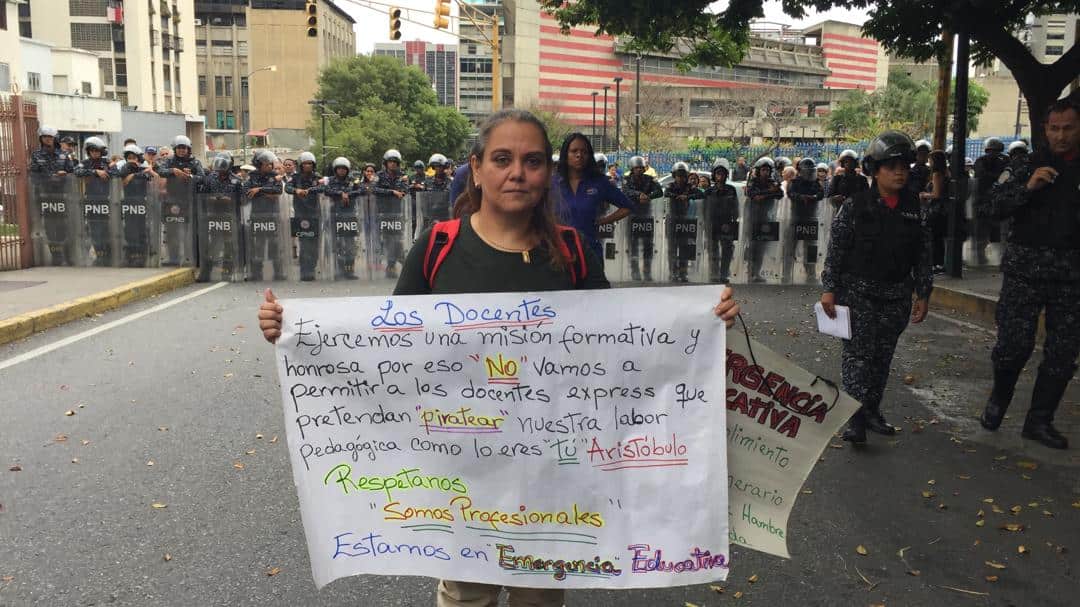 PNB
PNB
PNB
CPNB
CPNB
CPNB
PNB
PNB
PNB
PNB
PNB
PNB
PNB
PNB
Los Docentes
Ejercemos una misión formativa y
honrosa por eso "No" vamos a
permitir a los docentes express que
pretendan "piratear" nuestra labor
pedagógica como lo eres "tú" Aristóbulo
Respetanos
"Somos Profesionales"
Estamos en "Emergencia" Educativa
RGENCIA
CATIVA
limiento
nerario
Hambre
da